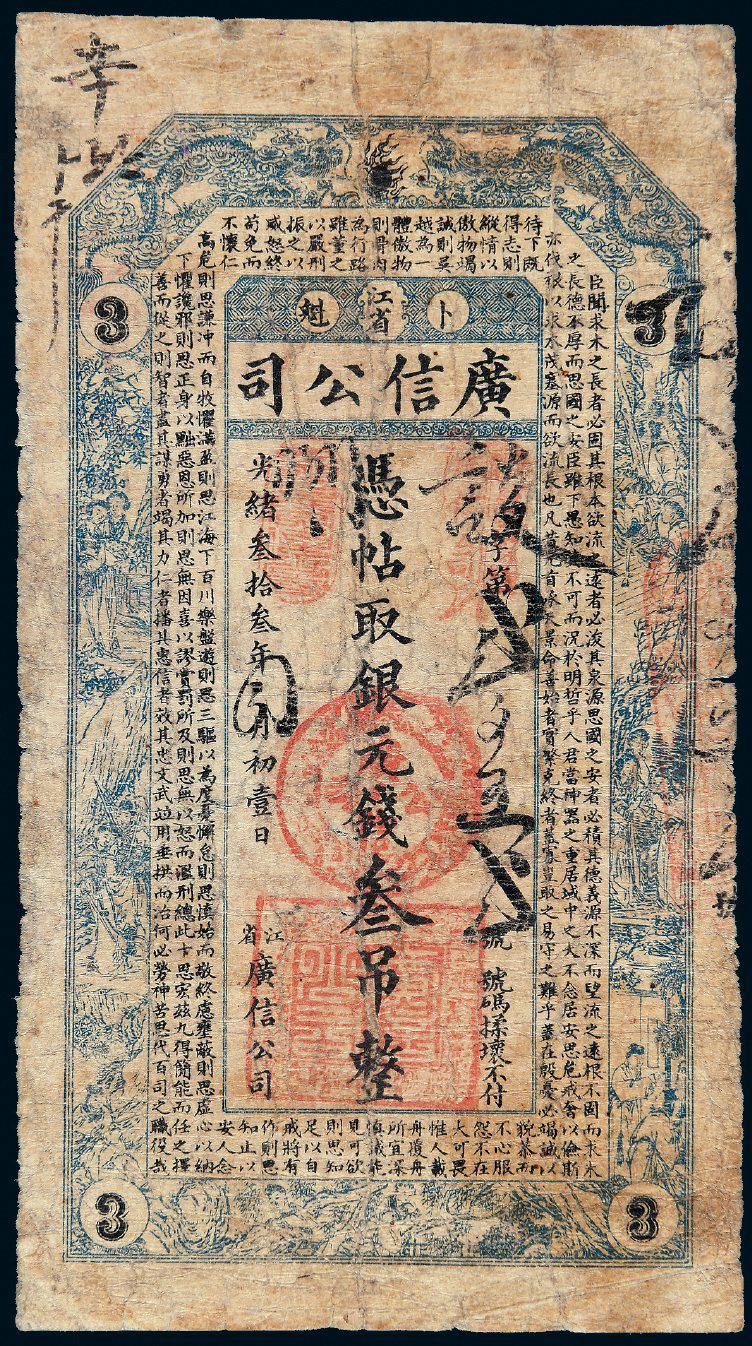 3
3
卜
江省
魁
廣信公司
字第
號
號碼揉壞不付
憑帖取銀元錢叁吊整
光緒叁拾叁年
月初壹日
江省
廣信公司
臣聞求木之長者必固其根本欲流之遠者必浚其泉源思國之安者必積其德義源不深而望流之遠根不固而求木
之長德不厚而思國之安臣雖下愚知其不可而況於明哲乎人君當神器之重居域中之大不念居安思危戒奢以儉斯
亦伐根以求木茂塞源而欲流長也凡昔元首承天景命善始者實繁克終者蓋寡豈取之易守之難乎蓋在殷憂必竭誠以
待下既
得志則
縱情以
傲物竭
誠則吳
越為一
體傲物
則骨肉
為行路
雖董之
以嚴刑
振之以
威怒終
苟免而
不懷仁
貌恭而
不心服
怨不在
大可畏
惟人載
舟覆舟
所宜深
慎誠能
見可欲
則思知
足以自
戒將有
作則思
知止以
安人念
高危則思謙冲而自牧懼滿盈則思江海下百川樂盤遊則思三驅以為度憂懈怠則思慎始而敬終慮壅蔽則思虛心以納
下懼讒邪則思正身以黜惡恩所加則思無因喜以謬賞罰所及則思無以怒而濫刑總此十思宏茲九得簡能而任之擇
善而從之則智者盡其謀勇者竭其力仁者播其惠信者效其忠文武竝用垂拱而治何必勞神苦思代百司之職役哉
3
3